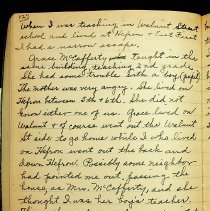 When I was teaching in Walnut Street
school and lived at Hefron & East Front
I had a narrow escape.
Grace McCafferty taught in the
same building teaching 2nd grade.
She had some trouble with a boy (pupil)
The mother was very angry. She lived on
Hefron between 5th & 6th. She did not
know either one of us. Grace lived on
Walnut & of course went out the Walnut
St side to go home while I who lived
on Hefron went out the back and
down Hefron. Possibly some neighbor
had pointed me out, passing the
house as Mrs. McCafferty, and she
thought I was her boy's teacher.